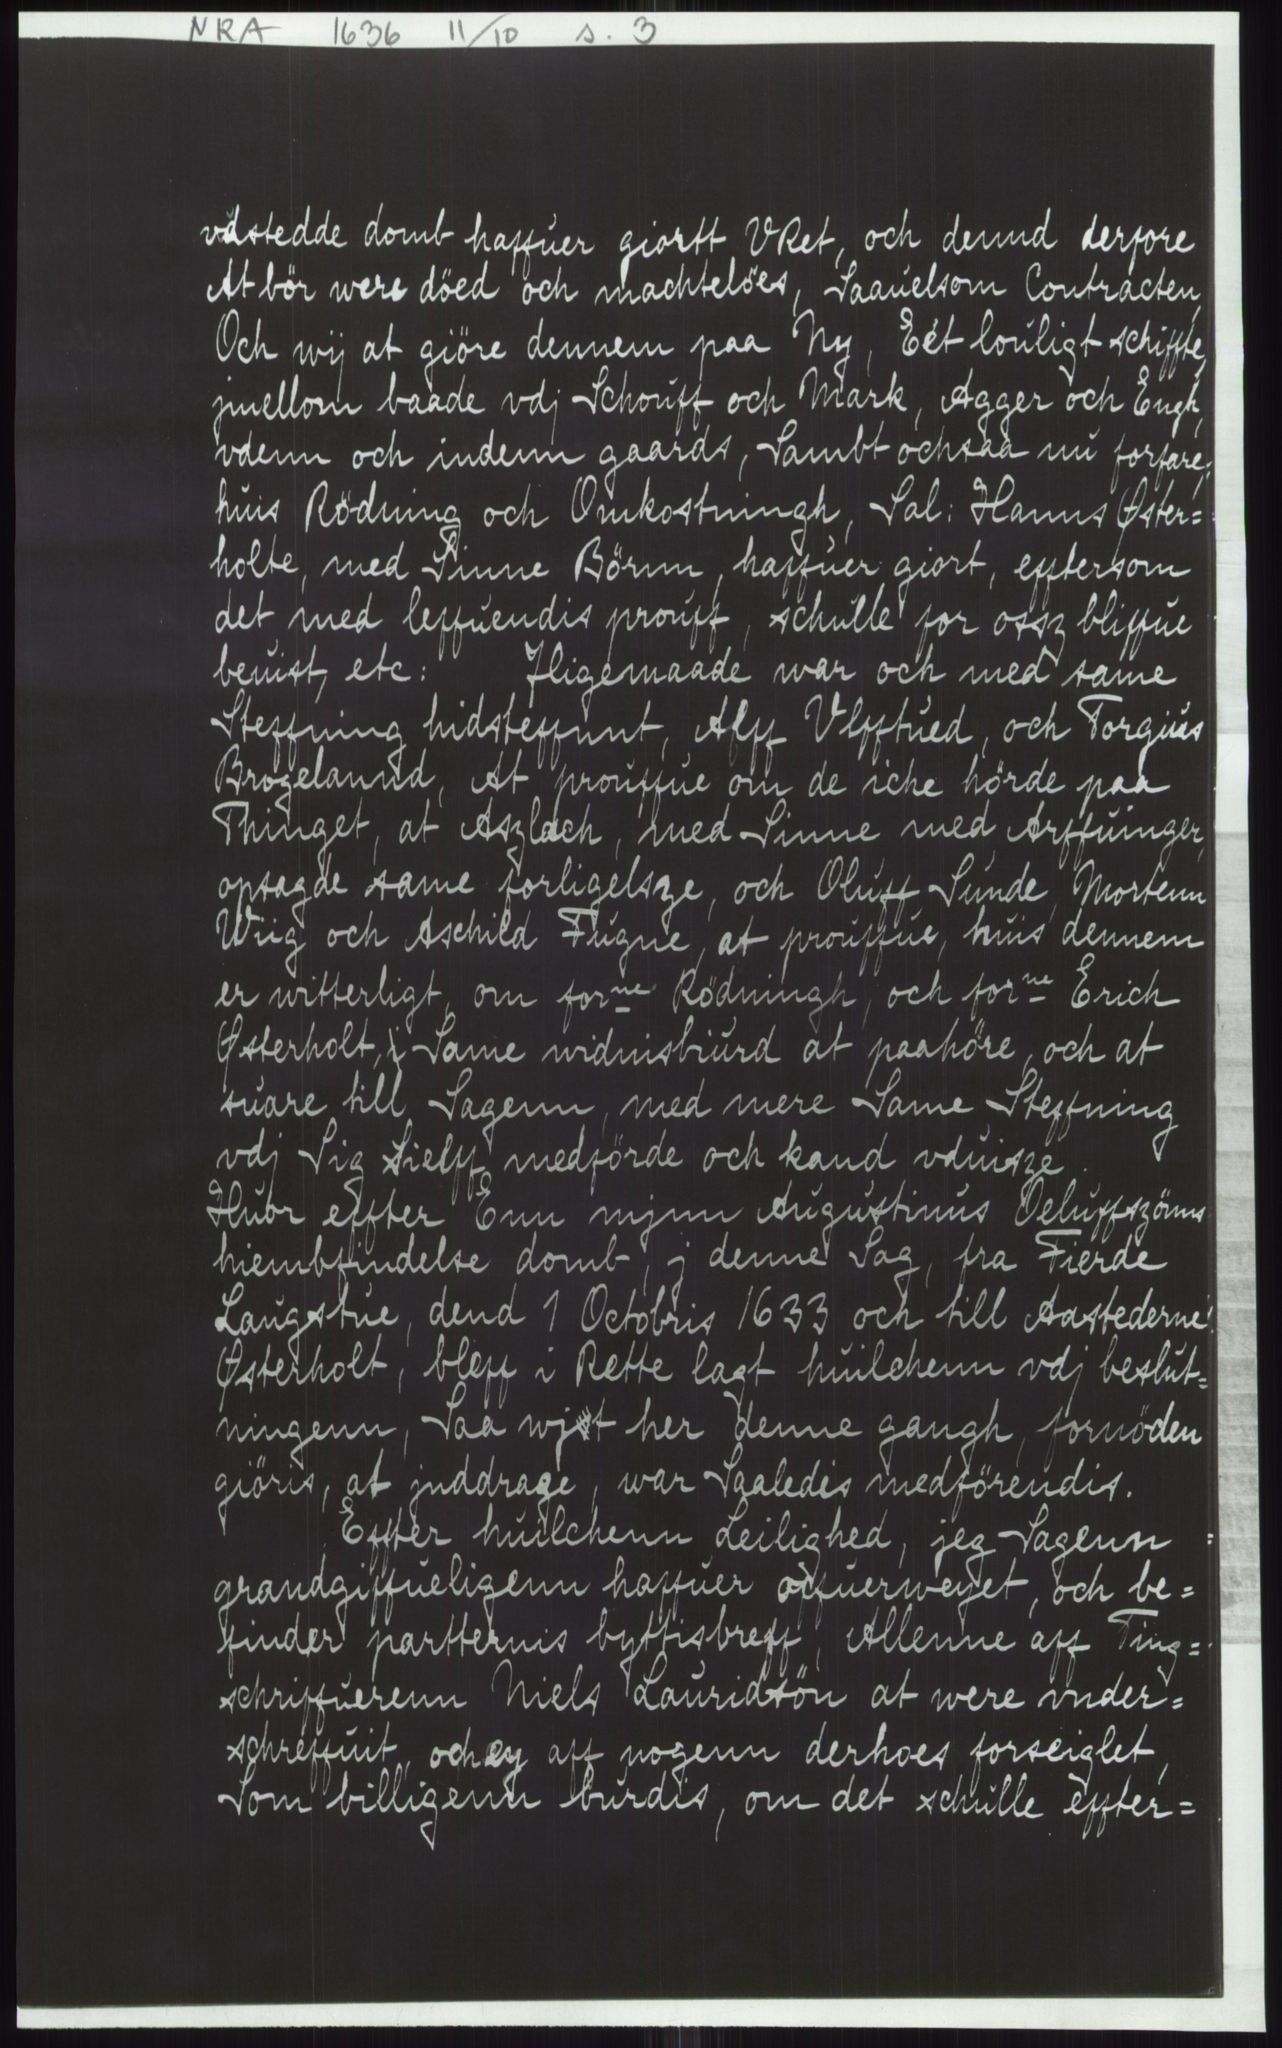 NRA 1636 11/10 s. 3
vdstedde domb haffuer giortt VRet, och dennd derfore
At bör were döed och machtelöes, Saauelsom Contracten,
Och wij at giöre dennem paa Ny, Eet louligt schiffte,
jmellom baade vdj Schouff och Mark, Agger och Engh,
vdenn och indenn gaards, Sambt ochsaa nu forfare,
huis Rödning och Omkostningh, Sal: Hanns Øster=
holte, med Sinne Börnn, haffuer giort, efftersom
det med leffuendis prouff, schulle for ossz bliffue
beuist, etc: Jligemaade war och med same
Steffning hidsteffnnt, Alff Vlfftued, och Torgius
Brogelannd, At prouffue om de iche hörde paa
Thinget, at Aszlach, med Sinne med Arffuinger,
opsagde same forligelsze, och Oluff Sunde, Mortenn
Wiig och Aschild Fugne, at prouffue, huis dennem
er witterligt, om forne Rödningh, och forne Erich
Østerholt, Same widnisbiurd at paahöre, och at
suare till Sagenn, med mere Same Steffning
vdj Sig Sielff medförde och kand vduisze.
Huor effter Enn mjnn Augustinus Oeluffszönns
hiembfindelse domb, j denne Sag, fra Fierde
Laugstue, dend 1 Octobris 1633 och till Aastederne
Østerholt, bleff i Rette lagt huilchenn vdj beslut=
ningenn, Saa wjst her denne gangh, fornöden
giöris, at jnddrage, war Saaledis medförendis.
Effter huilchenn Leilighed, jeg Sagenn
grandgiffueligenn haffuer offuerweyet, och be=
finder partternis byttisbreff, Allenne aff Ting=
schriffuerenn Niels Lauridsön at were vnder=
schreffuit, och ey aff nogenn derhoes forseiglet,
Som billigenn burdis, om det schulle effter=